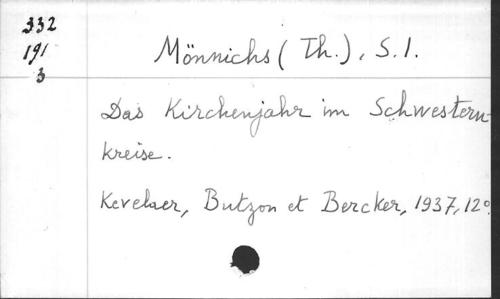 332
191
3
Mönnichs (Th.), S.I.
Das Kirchenjahr im Schwestern-
kreise.
Kevelaer, Butzon et Bercker, 1937, 12°.